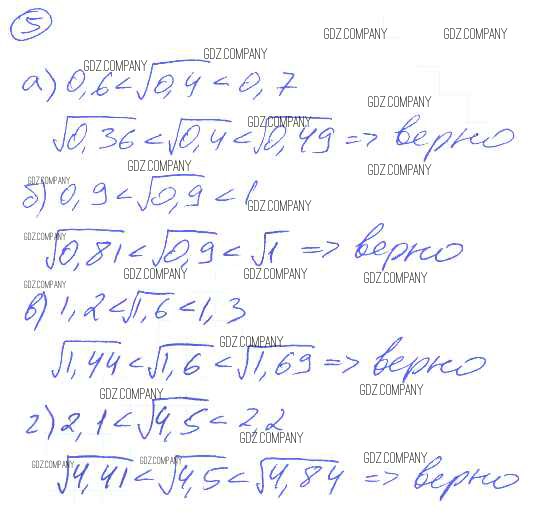 5
GDZ.COMPANY GDZ.COMPANY
GDZ.COMPANY
GDZ.COMPANY
а) 0,6 < √0,4 < 0,7
GDZ.COMPANY
GDZ.COMPANY
√0,36 < √0,4 < √0,49 => верно
GDZ.COMPANY GDZ.COMPANY
GDZ.COMPANY
б) 0,9 < √0,9 < 1
GDZ.COMPANY
GDZ.COMPANY
√0,81 < √0,9 < √1 => верно
GDZ.COMPANY GDZ.COMPANY GDZ.COMPANY
GDZ.COMPANY
в) 1,2 < √1,6 < 1,3
GDZ.COMPANY
√1,44 < √1,6 < √1,69 => верно
GDZ.COMPANY GDZ.COMPANY
г) 2,1 < √4,5 < 2,2
GDZ.COMPANY
GDZ.COMPANY GDZ.COMPANY GDZ.COMPANY
√4,41 < √4,5 < √4,84 => верно